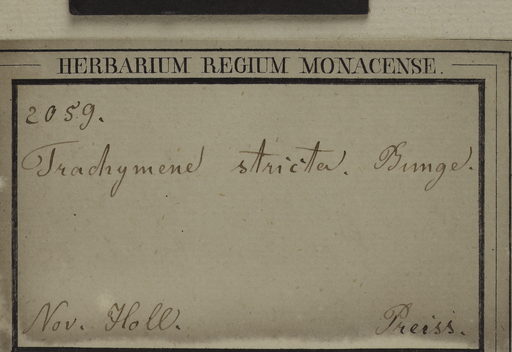 HERBARIUM REGIUM MONACENSE.
2059.
Trachymene stricta. Bunge.
Nov. Holl. Preiss.